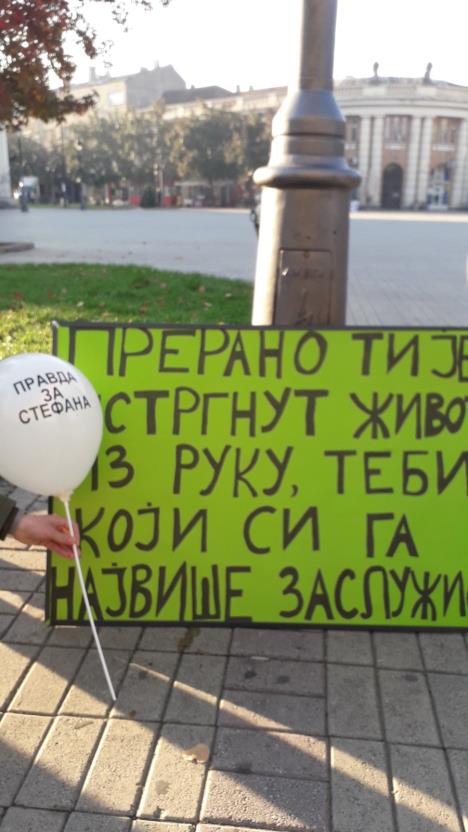 ПРАВДА
ЗА
СТЕФАНА
ПРЕРАНО ТИ ЈЕ
ИСТРГНУТ ЖИВОТ
ИЗ РУКУ, ТЕБИ
КОЈИ СИ ГА
НАЈВИШЕ ЗАСЛУЖИ